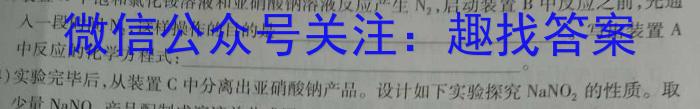 装置 饱和氯化铵溶液和亚硝酸钠溶液反应产生 N₂,启动装置 B 中反应之前,先通
入一段
微信公众号关注:趣找答案
装置 A
中反应的化学方程式:
)实验完毕后,从装置 C 中分离出亚硝酸钠产品。设计如下实验探究 NaNO₂ 的性质。取
少量 NaNO₂ 产品配制成溶液